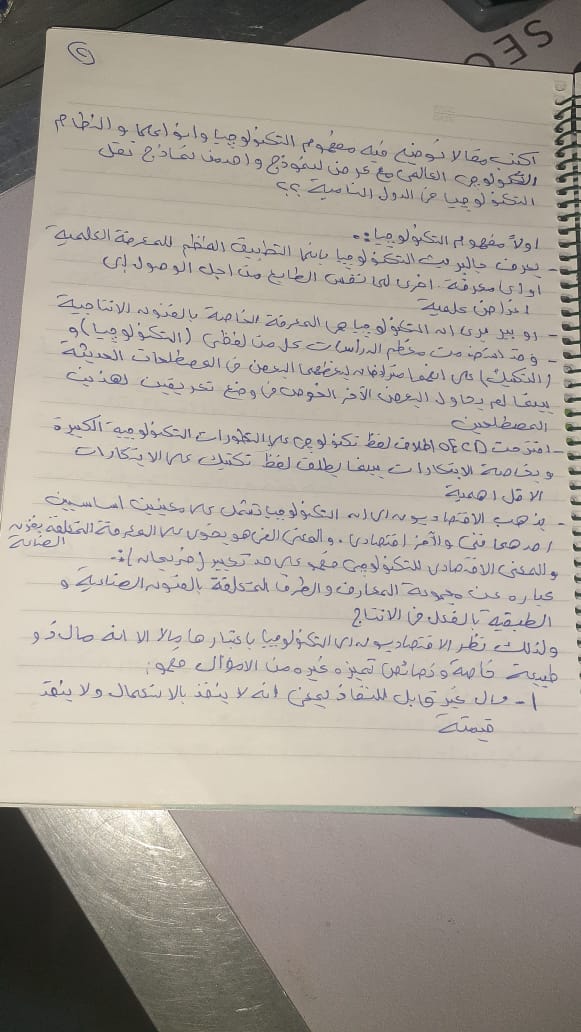 SEC
٢
اكتب مقالا توضح فيه مفهوم التكنولوجيا وانواعها والنظام
التكنولوجى العالمى مع عرض لنموذج واحد من نماذج نقل
التكنولوجيا فى الدول النامية ؟؟
اولاً مفهوم التكنولوجيا :.
- يعرف جالبريث التكنولوجيا بانها التطبيق المنظم للمعرفة العلمية
او اى معرفة اخرى لها نفس الطابع من اجل الوصول إلى
اغراض علمية
- روبير يرى ان التكنولوجيا هى المعرفة الخاصة بالفنون الانتاجية
- وقد استخدمت معظم الدراسات كل من لفظى (التكنولوجيا) و
(التكنيك) على انهما مترادفان يعطيهما البعض فى المصطلحات الحديثة
بينما لم يحاول البعض الآخر الخوض فى وضع تعريفين لهذين
المصطلحين
- اقترحت OECD اطلاق لفظ تكنولوجى على التطورات التكنولوجية الكبيرة
وبخاصة الابتكارات بينما يطلق لفظ تكنيك على الابتكارات
الاقل اهمية
- يذهب الاقتصاديون الى ان التكنولوجيا تشمل على معنيين اساسيين
احدهما فنى والآخر اقتصادى . والمعنى الفنى هو يحتوى على المعرفة المتعلقة بفنون
الصناعة
والمعنى الاقتصادى للتكنولوجى فهو على حد تعبير (فريجان) :.
عباره عن مجموعة المعارف والطرق المتعلقة بالفنون الصناعية و
الطبقية بالفعل فى الانتاج
ولذلك نظر الاقتصاديون الى التكنولوجيا باعتبارها مالا الا انه مال ذو
طبيعة خاصة وخصائص تميزه غيره من الاموال فهو :
١- مال غير قابل للنفاذ بمعنى انه لا ينفذ بالاستعمال ولا ينفذ
قيمتة